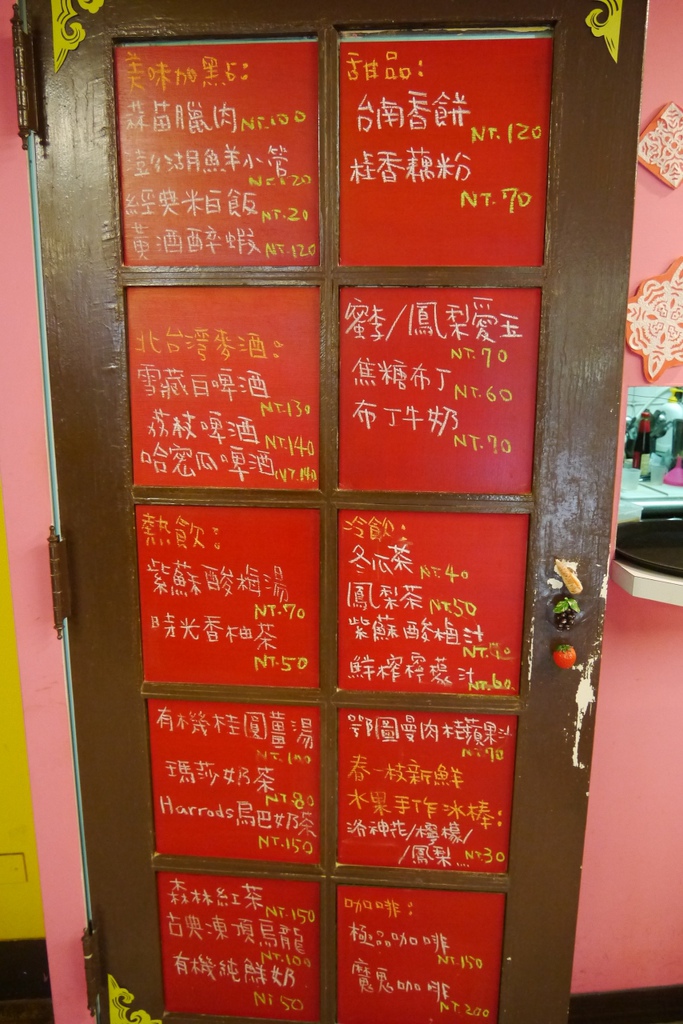 美味加點:
蒜苗臘肉 NT.100
澎湖鮮小管
NT.120
經典米白飯 NT.20
黃酒醉蝦 NT.120
甜品:
台南香餅
NT.120
桂香藕粉
NT.70
北台灣麥酒:
雪藏白啤酒
NT.130
荔枝啤酒
NT.140
哈密瓜啤酒 NT.140
蜜李/鳳梨愛玉
NT.70
焦糖布丁
NT.60
布丁牛奶
NT.70
熱飲:
紫蘇酸梅湯
NT.70
時光香柚茶
NT.50
冷飲:
冬瓜茶 NT.40
鳳梨茶 NT.50
紫蘇酸梅汁
鮮榨檸檬汁
NT.60
有機桂圓薑湯
NT.100
瑪莎奶茶
NT.80
Harrods烏巴奶茶
NT.150
鄂圖曼肉桂蘋果汁
NT.70
春一枝新鮮
水果手作冰棒:
洛神花/檸檬/
/鳳梨... NT.30
森林紅茶
NT.150
古典凍頂烏龍
NT.100
有機純鮮奶
NT 50
咖啡:
極品咖啡
NT.150
魔鬼咖啡
NT.200